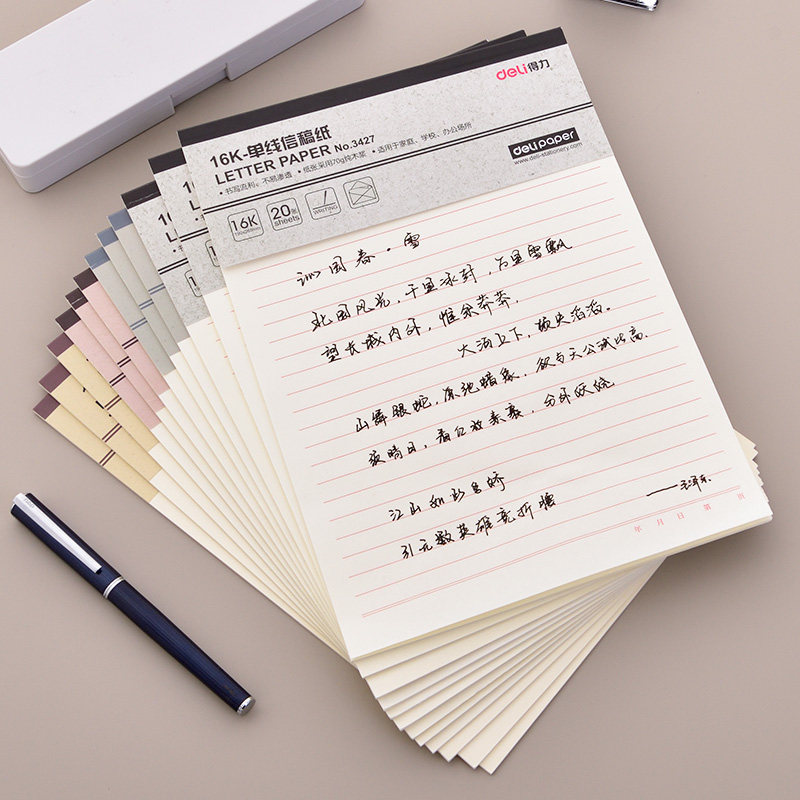 deli得力
16K-单线信稿纸
LETTER PAPER No.3427
• 书写流利，不易渗透 • 纸张采用70g纯木浆 • 适用于家庭、学校、办公场所
deli paper
www.deli-stationery.com
16K
20张
sheets
WRITING
沁园春·雪
北国风光，千里冰封，万里雪飘
望长城内外，惟余莽莽，
大河上下，顿失滔滔。
山舞银蛇，原驰蜡象，欲与天公试比高。
须晴日，看红妆素裹，分外妖娆
江山如此多娇
引无数英雄竞折腰
——毛泽东
年 月 日 第 页